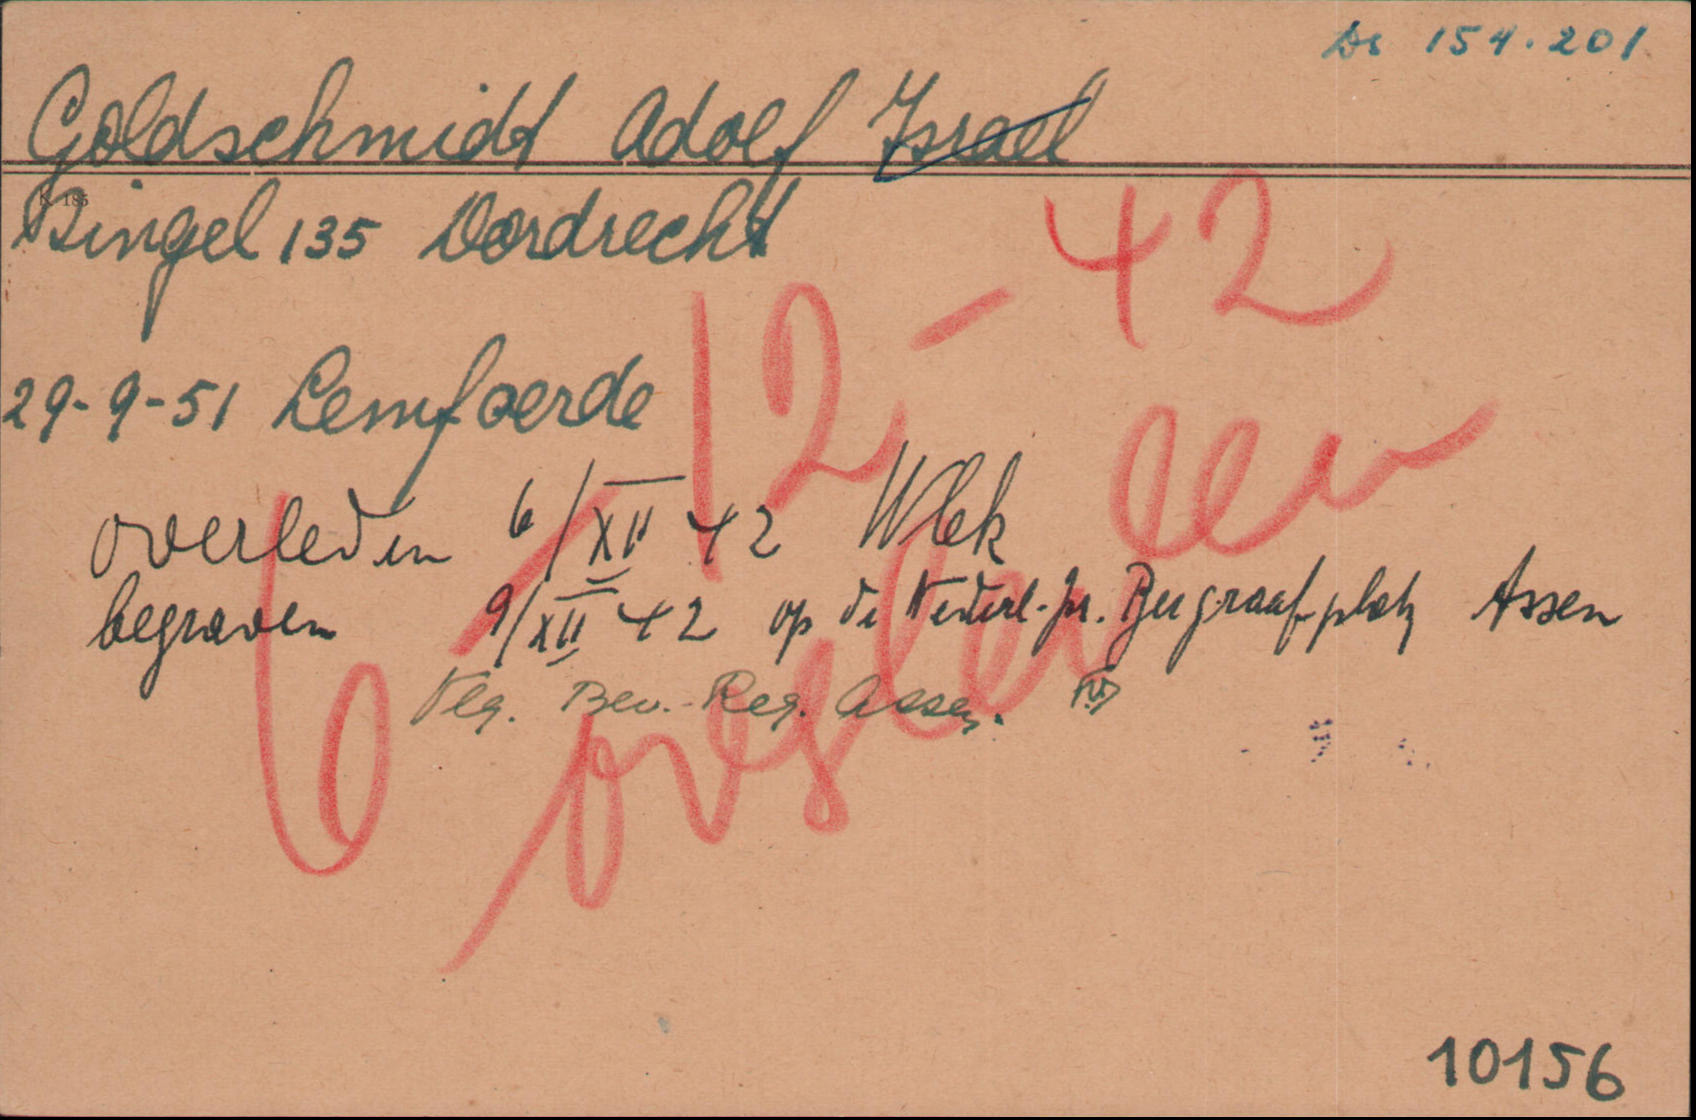 154.201
Goldschmidt Adolf Israel
K 185
Singel 135 Dordrecht
29-9-51 Lemfoerde
6-12-42
overleden
overleden 6/XII 42 Wbk
begraven 9/XII 42 op de Nederl. Isr. Begraafplats Assen
Bev.-Reg. Assen.
10156